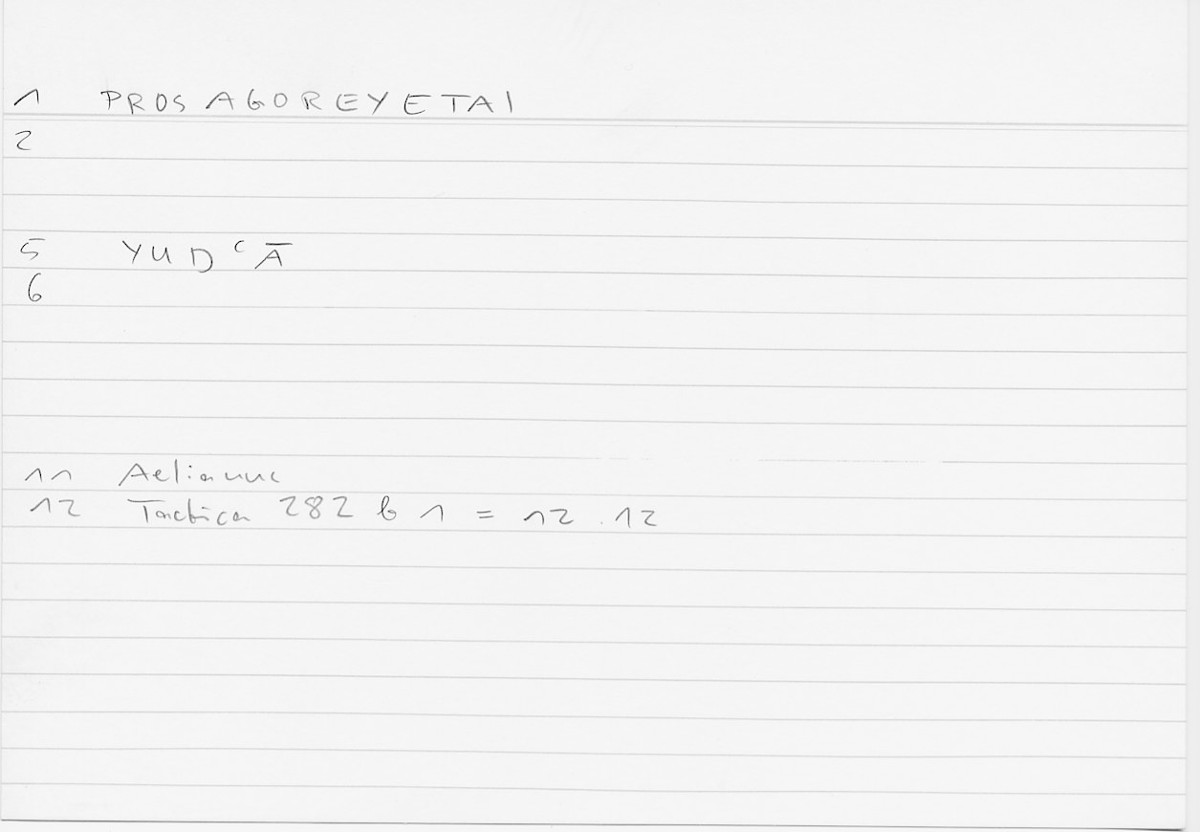 1 PROSAGOREYETAI
2
5 YUDʿĀ
6
11 Aelianus
12 Tactica 282 b 1 = 12.12